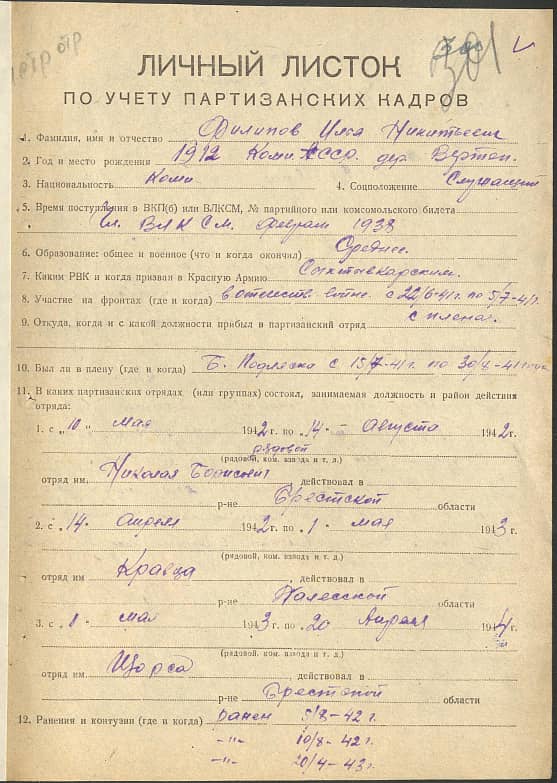 отр
ЛИЧНЫЙ ЛИСТОК
ПО УЧЕТУ ПАРТИЗАНСКИХ КАДРОВ
1. Фамилия, имя и отчество Филипов Илья Никитьевич
2. Год и место рождения 1912 Коми АССР. дер. Вертоп.
3. Национальность Коми 4. Соцположение Служащий
5. Время поступления в ВКП(б) или ВЛКСМ, № партийного или комсомольского билета
Чл. ВЛКСМ. Феврал 1938
6. Образование: общее и военное (что и когда окончил) Среднее.
7. Каким РВК и когда призван в Красную Армию Сыктывкарским.
8. Участие на фронтах (где и когда) в отечеств. войне. с 22/6-41г. по 5/7-41г.
9. Откуда, когда и с какой должности прибыл в партизанский отряд с плена.
10. Был ли в плену (где и когда) Б. Подляска с 15/7-41г. по 30/8-41
11. В каких партизанских отрядах (или группах) состоял, занимаемая должность и район действия
отряда:
1. с „10" мая 1942 г. по „14" Августа 1942 г.
рядовой
(рядовой, ком. взвода и т. д.)
отряд им Николая Борисович, действовал в
р-не Брестской области
2. с „14" апреля 1942 г. по „1" мая 1943 г.
(рядовой, ком. взвода и т. д.)
отряд им Кравца, действовал в
р-не Полесской области
3. с „1" мая 1943 г. по „20" Апреля 1944 г.
(рядовой, ком. взвода и т. д.)
отряд им Щорса, действовал в
р-не Брестской области
12. Ранения и контузии (где и когда) ранен 5/8-42 г.
-"- 10/8-42 г.
-"- 20/4-43 г.